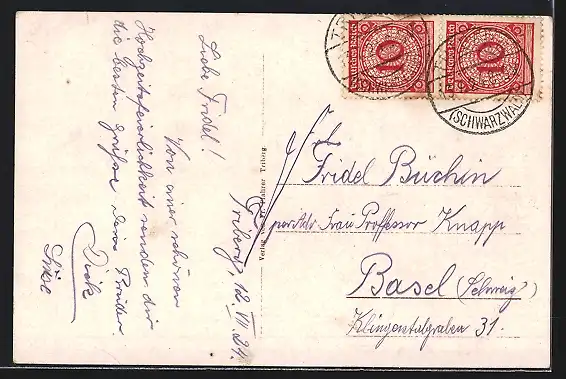 Liebe Fridel!
Von einer schönen
Hochzeitsfeierlichkeit senden dir
die besten Grüße dein Bruder
Dick
Süse
Triberg, 12. VII. 24.
Verlag von Triberg
Deutsches Reich
10
Deutsches Reich
10
(SCHWARZWALD)
Frl.
Fridel Büchin
per Adr. Frau Professor Knapp
Basel (Schweiz)
Klingentalgraben 31.